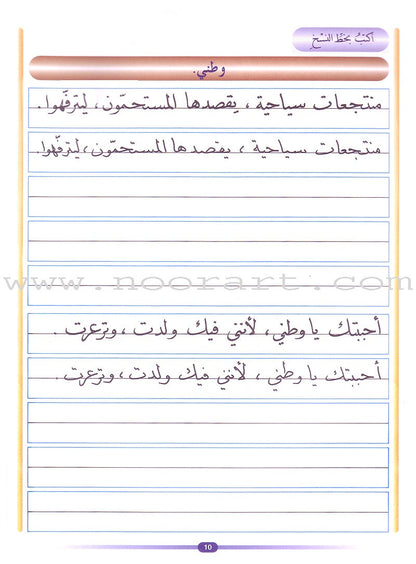 اكتب بخط النسخ
وطني.
منتجعات سياحية ، يقصدها المستحمّون ، ليترفّهوا .
منتجعات سياحية ، يقصدها المستحمّون ، ليترفّهوا .
www.noorart.com
أحببتك يا وطني ، لأنني فيك ولدت ، وترعرت .
أحببتك يا وطني ، لأنني فيك ولدت ، وترعرت .
10